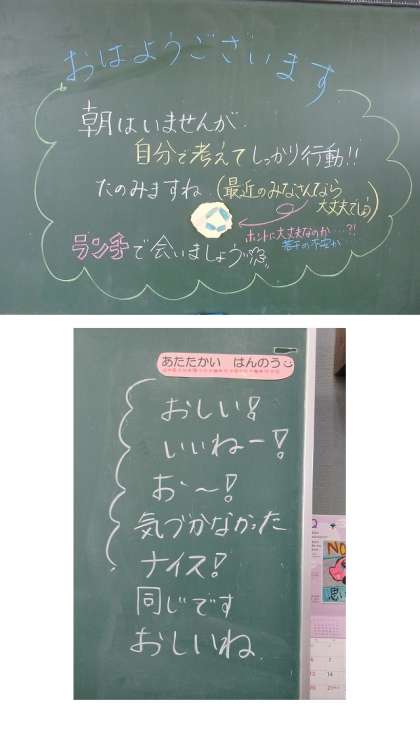 おはようございます
朝はいませんが
自分で考えてしっかり行動!!
たのみますね (最近のみなさんなら
大丈夫でしょう)
ホントに大丈夫なのか…?!
若干の不安が
ランチで会いましょう
あたたかい はんのう
おしい!
いいねー!
お〜!
気づかなかった
ナイス!
同じです
おしいね
NO
思い